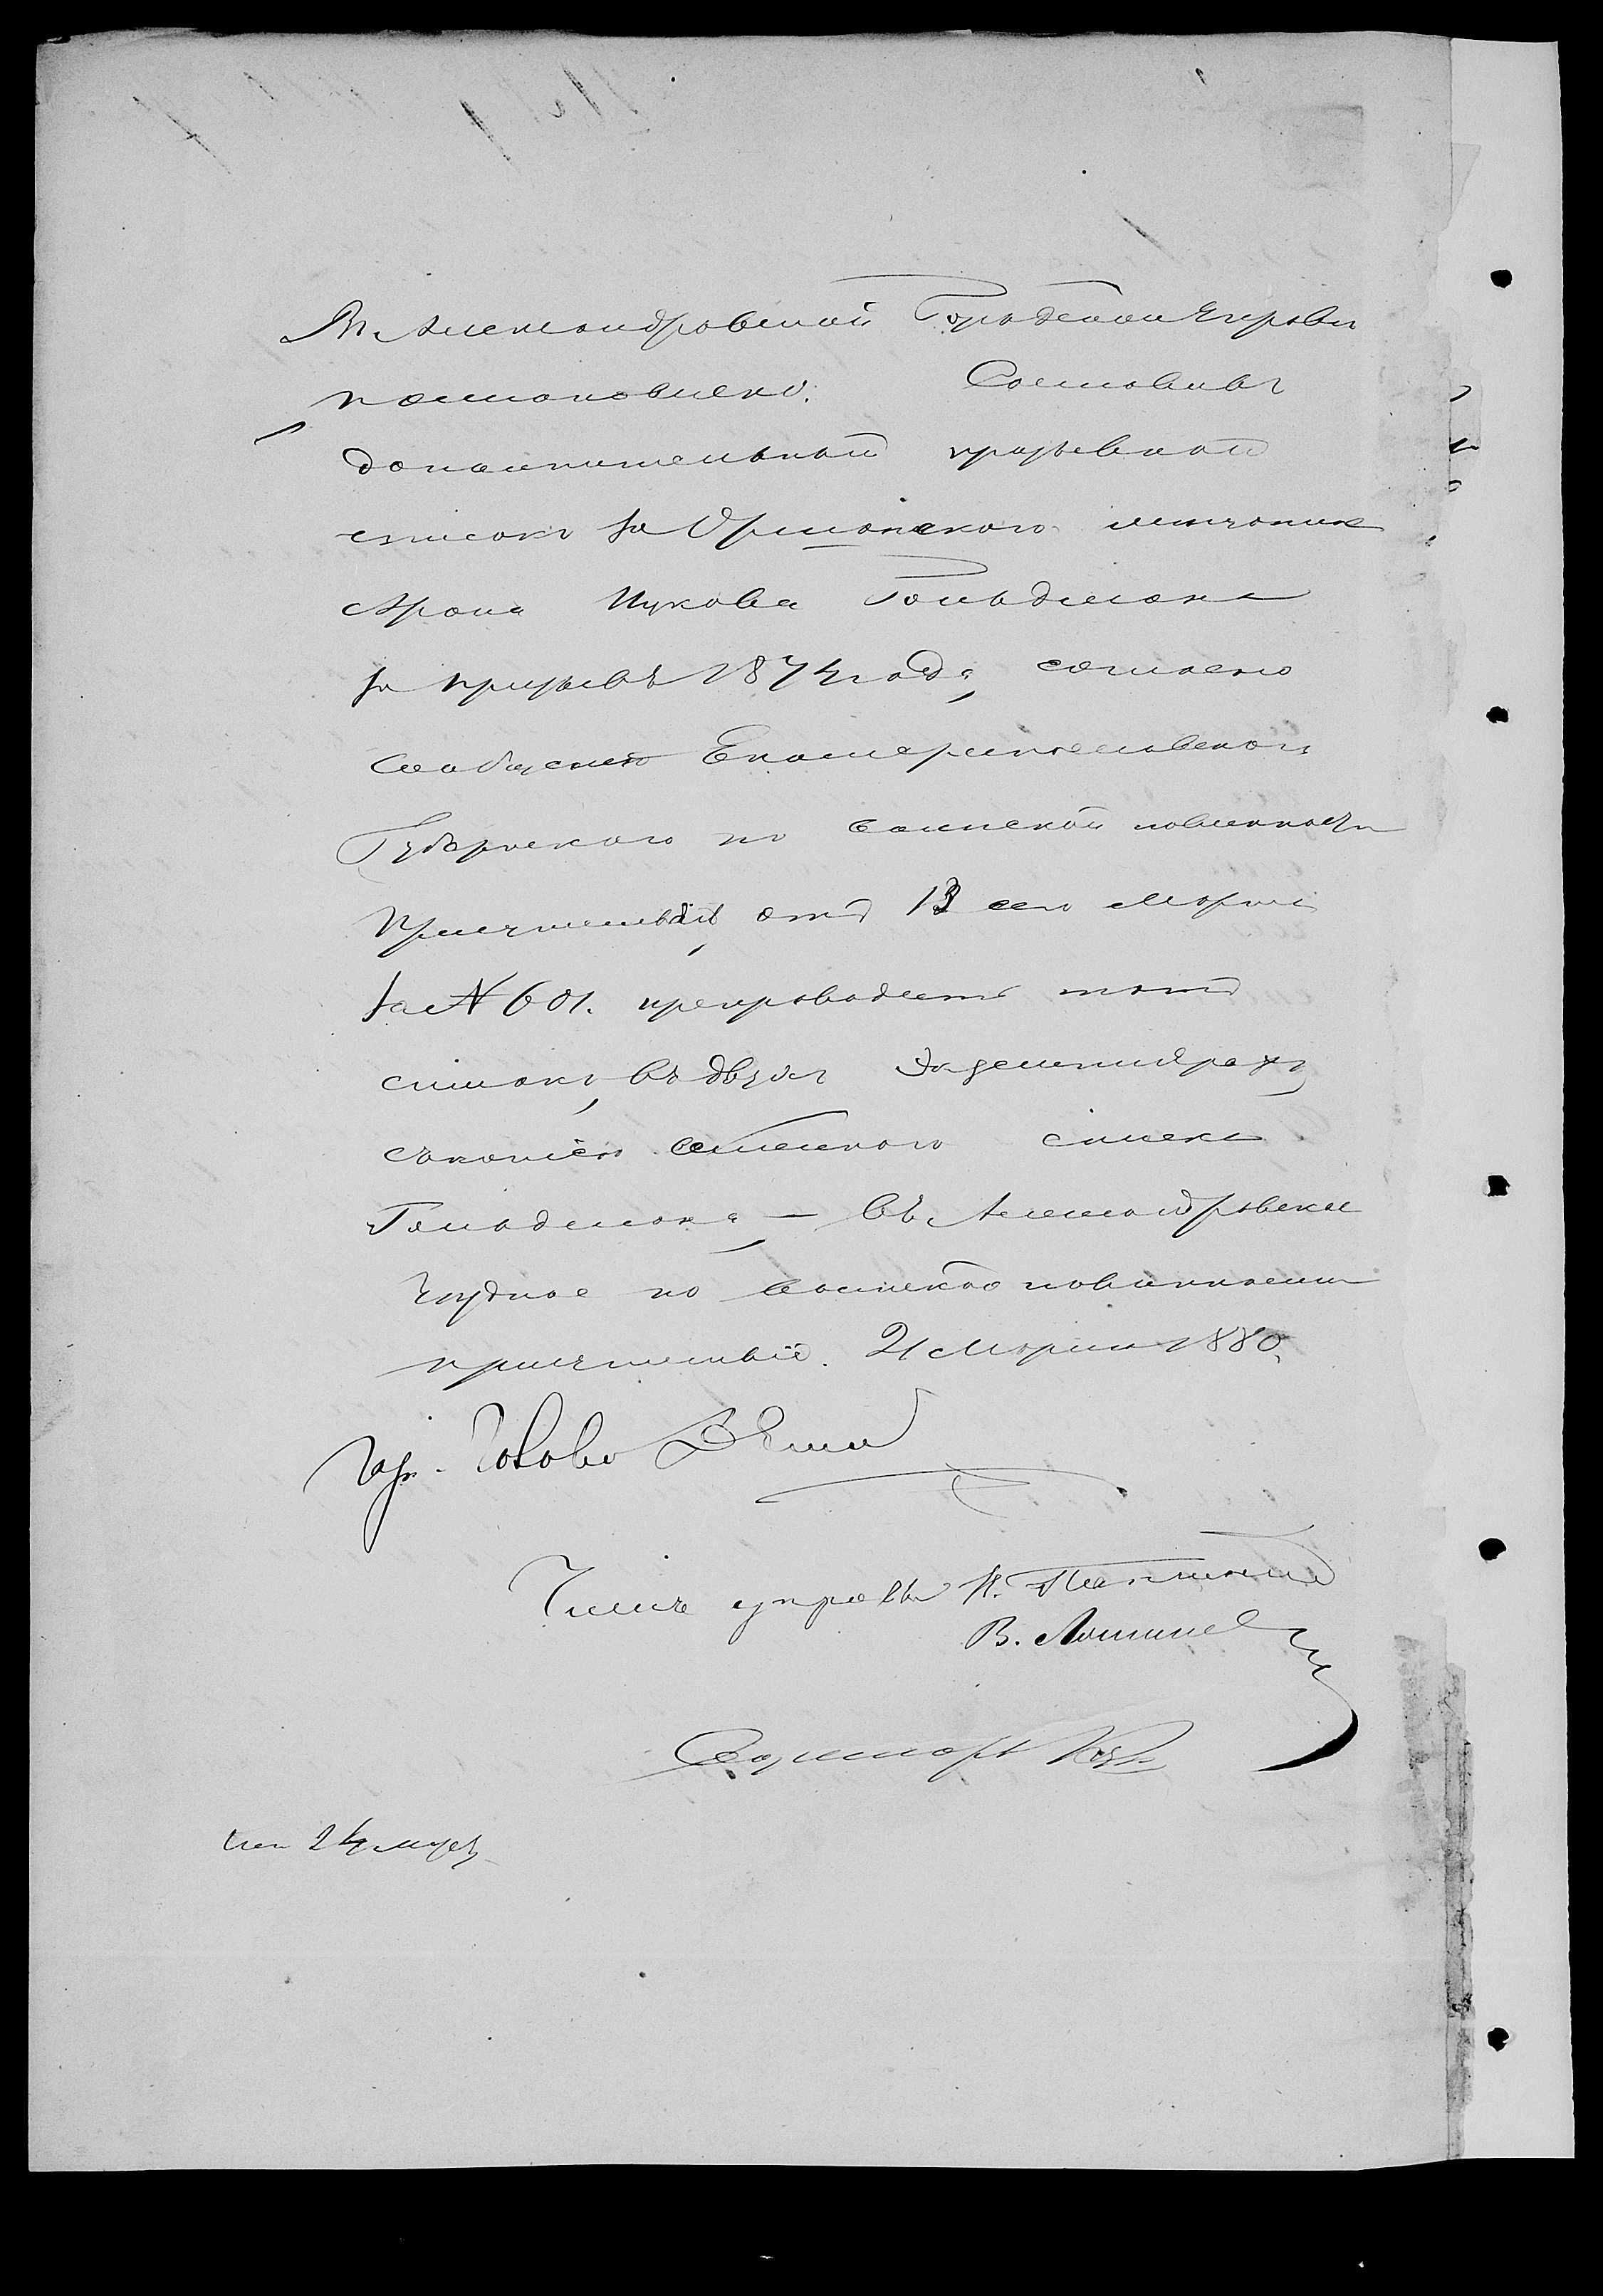 Въ Александровской Городской Управѣ
постановлено: Составивъ
дополнительный призывной
списокъ за Оршанского мѣщанина
Арона Ицкова Гольдмана
за призывъ 1874 года, согласно
сообщенію Екатеринославского
Губернского по воинской повинности
Присутствія, отъ 13 сего Марта
за № 601. препроводить тотъ
списокъ, въ двухъ экземплярахъ,
съ копіею семейного списка
Гольдмана, — въ Александровское
Уѣздное по воинской повинности
присутствіе. 21 Марта 1880.
Гор. Голова
Члены управы
В.
Секретарь
исп 24 марта